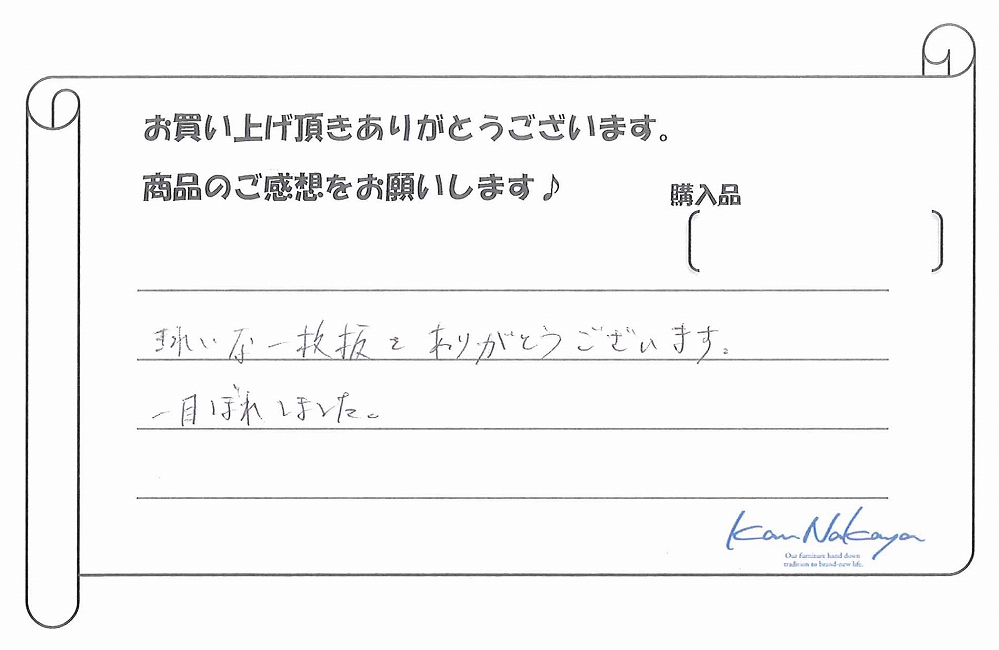 お買い上げ頂きありがとうございます。
商品のご感想をお願いします♪
購入品
きれいな一枚板をありがとうございます。
一目ぼれしました。
Kan Nakaya
Our furniture hand down
tradition to brand-new life.